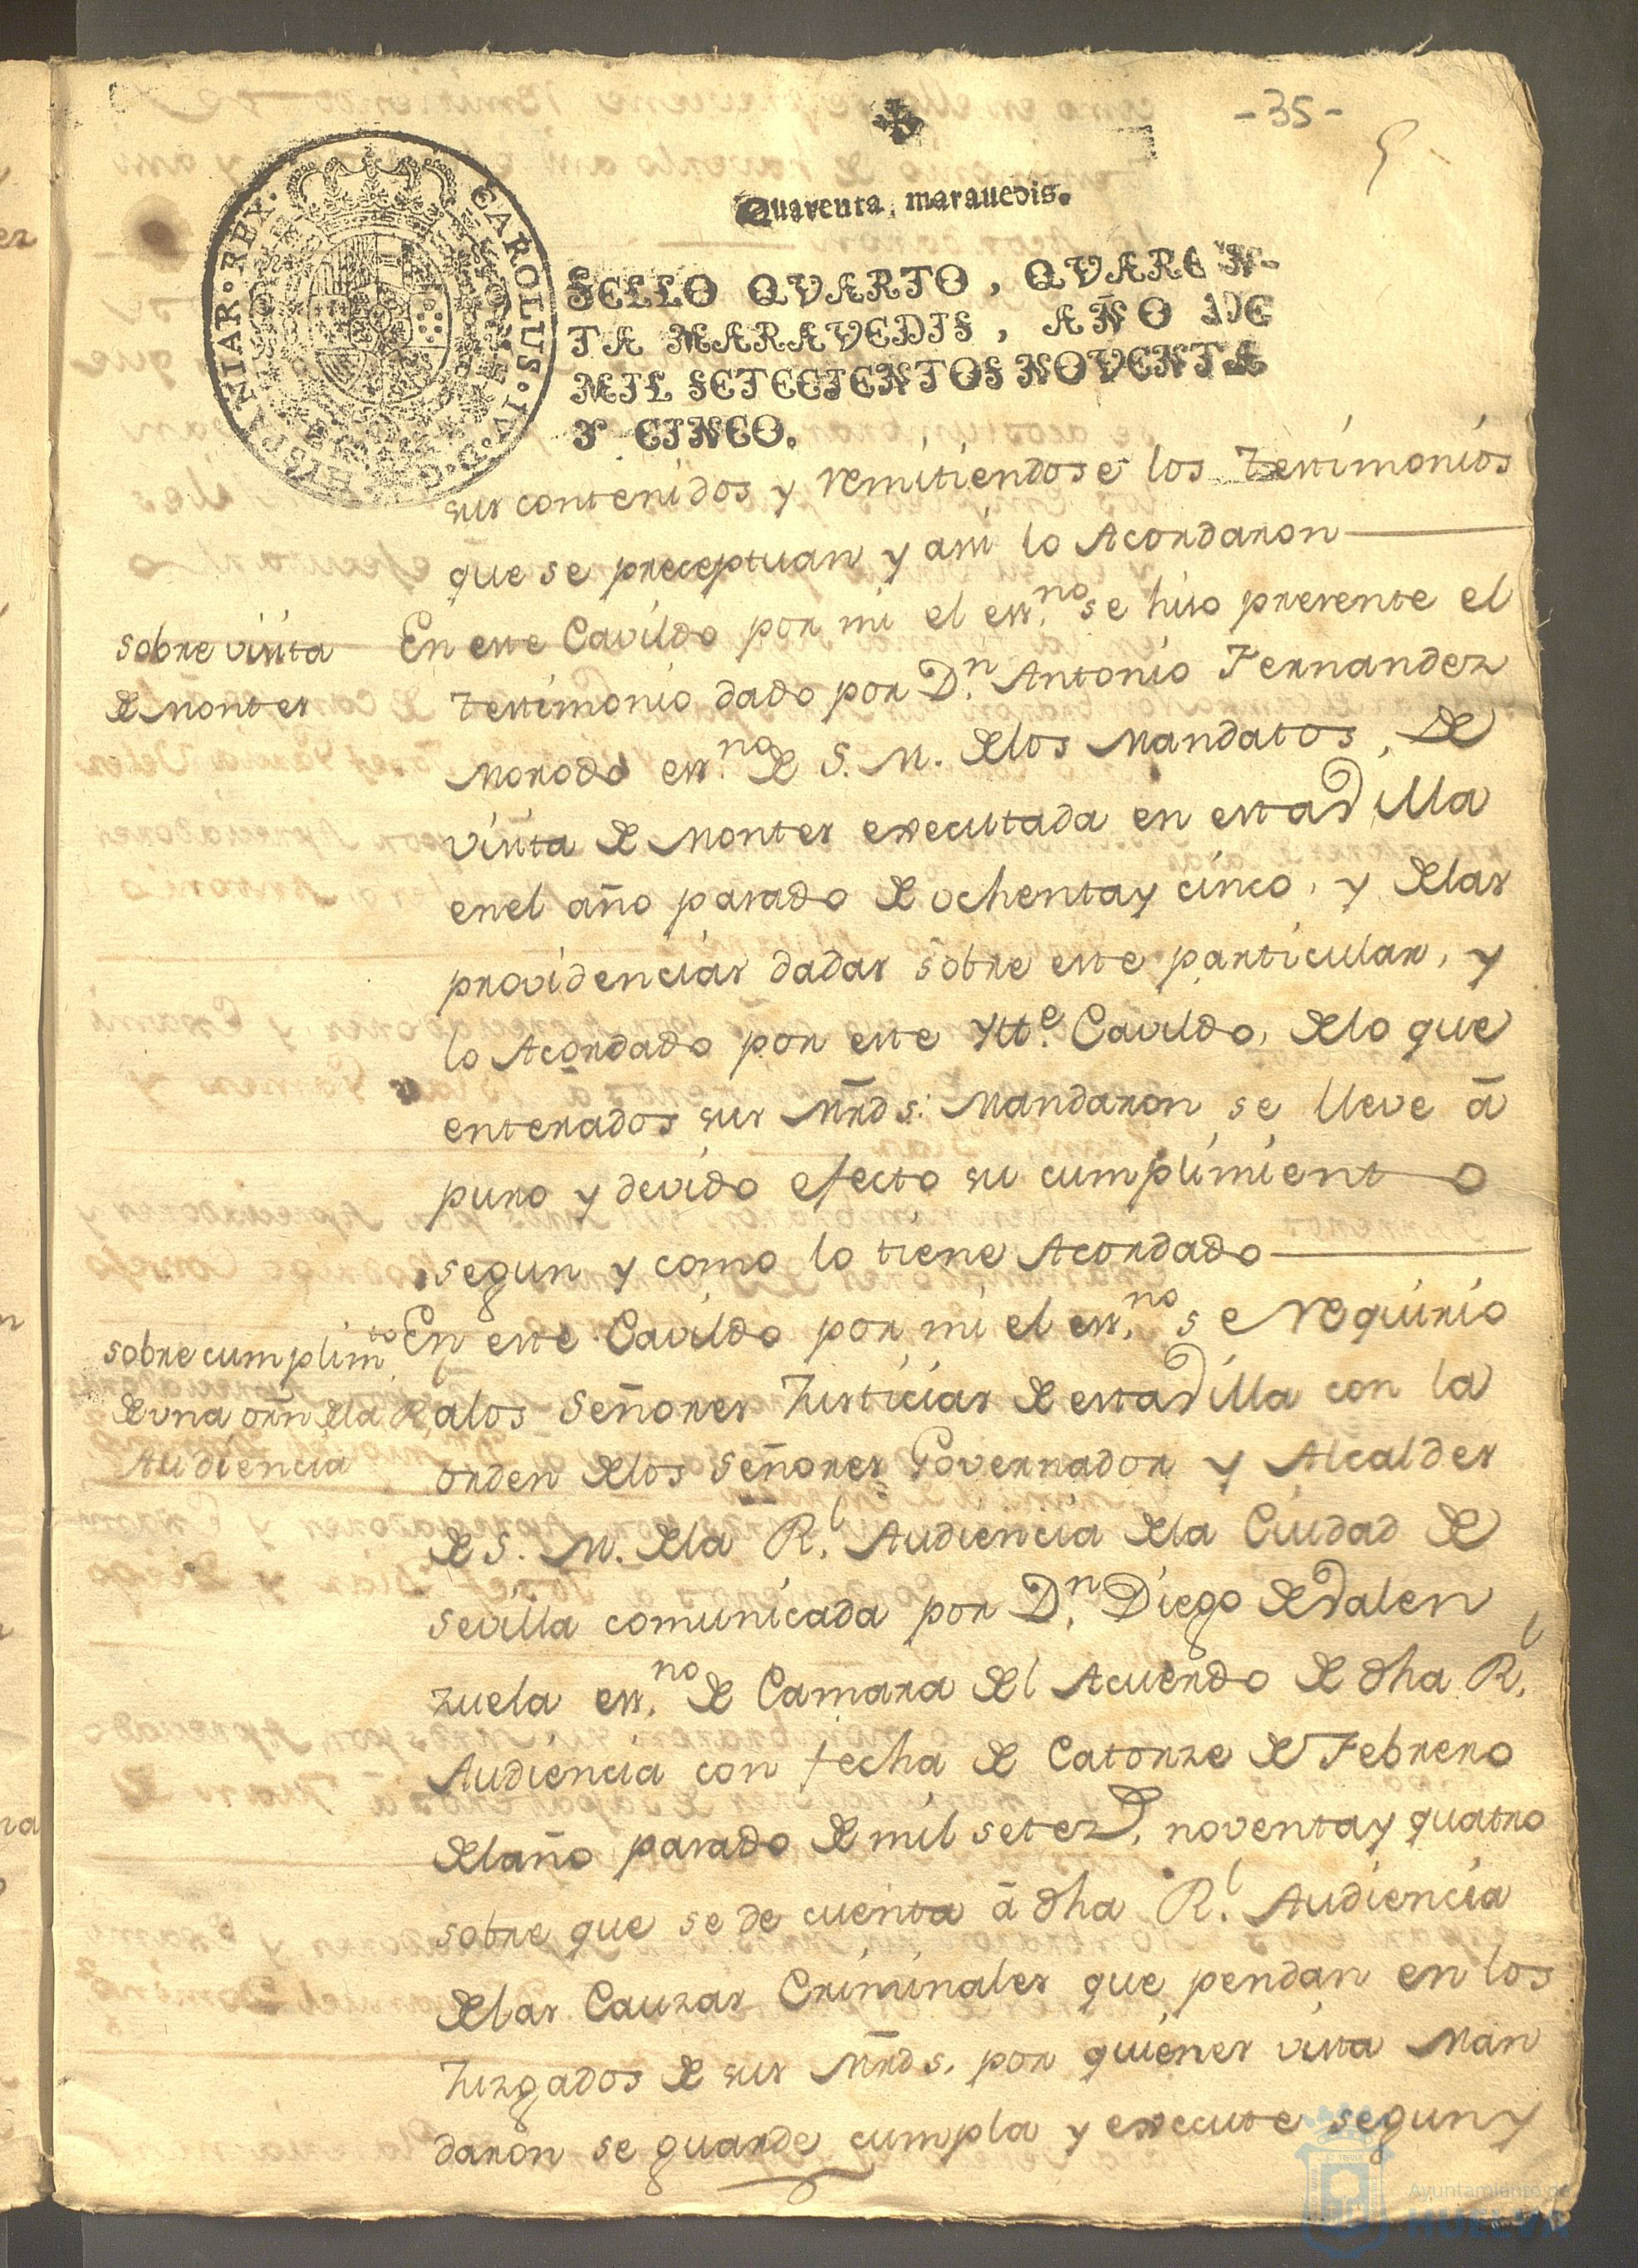 -35-
Quarenta, marauedis.
CAROLUS·IV·D·G·HISPANIAR·REX·
SELLO QVARTO, QVAREN-
TA MARAVEDIS, AÑO DE
MIL SETECIENTOS NOVENTA
Y CINCO.
sus contenidos y remitiendose los testimonios
que se preceptuan y asi lo Acordaron
sobre visita
de Montes
En este Cavildo por mi el ess.no se hiso presente el
testimonio dado por D.n Antonio Fernandez
Morodo ess.no de S. M. de los Mandatos, de
visita de Montes executada en esta Villa
en el año pasado de ochenta y cinco, y de las
providencias dadas sobre este particular, y
lo Acordado por este Ytt.e Cavildo, de lo que
enterados sus Mrds. Mandaron se lleve á
puro y devido efecto su cumplimiento
segun y como lo tiene Acordado
sobre cumplim.to
de una orn de la R.
Audiencia
En este Cavildo por mi el ess.no se requirio
a los Señores Justicias de esta Villa con la
orden de los Señores Governador y Alcaldes
de S. M. de la R.l Audiencia de la Ciudad de
Sevilla comunicada por D.n Diego de Valen
zuela ess.no de Camara del Acuerdo de dha R.l
Audiencia con fecha de Catorze de Febrero
del año pasado de mil setez.s noventa y quatro
sobre que se de cuenta á dha R.l Audiencia
de las Cauzas Criminales que pendan en los
Juzgados de sus Mrds. por quienes vista Man
daron se guarde cumpla y execute segun y
Ayuntamiento de
HUELVA